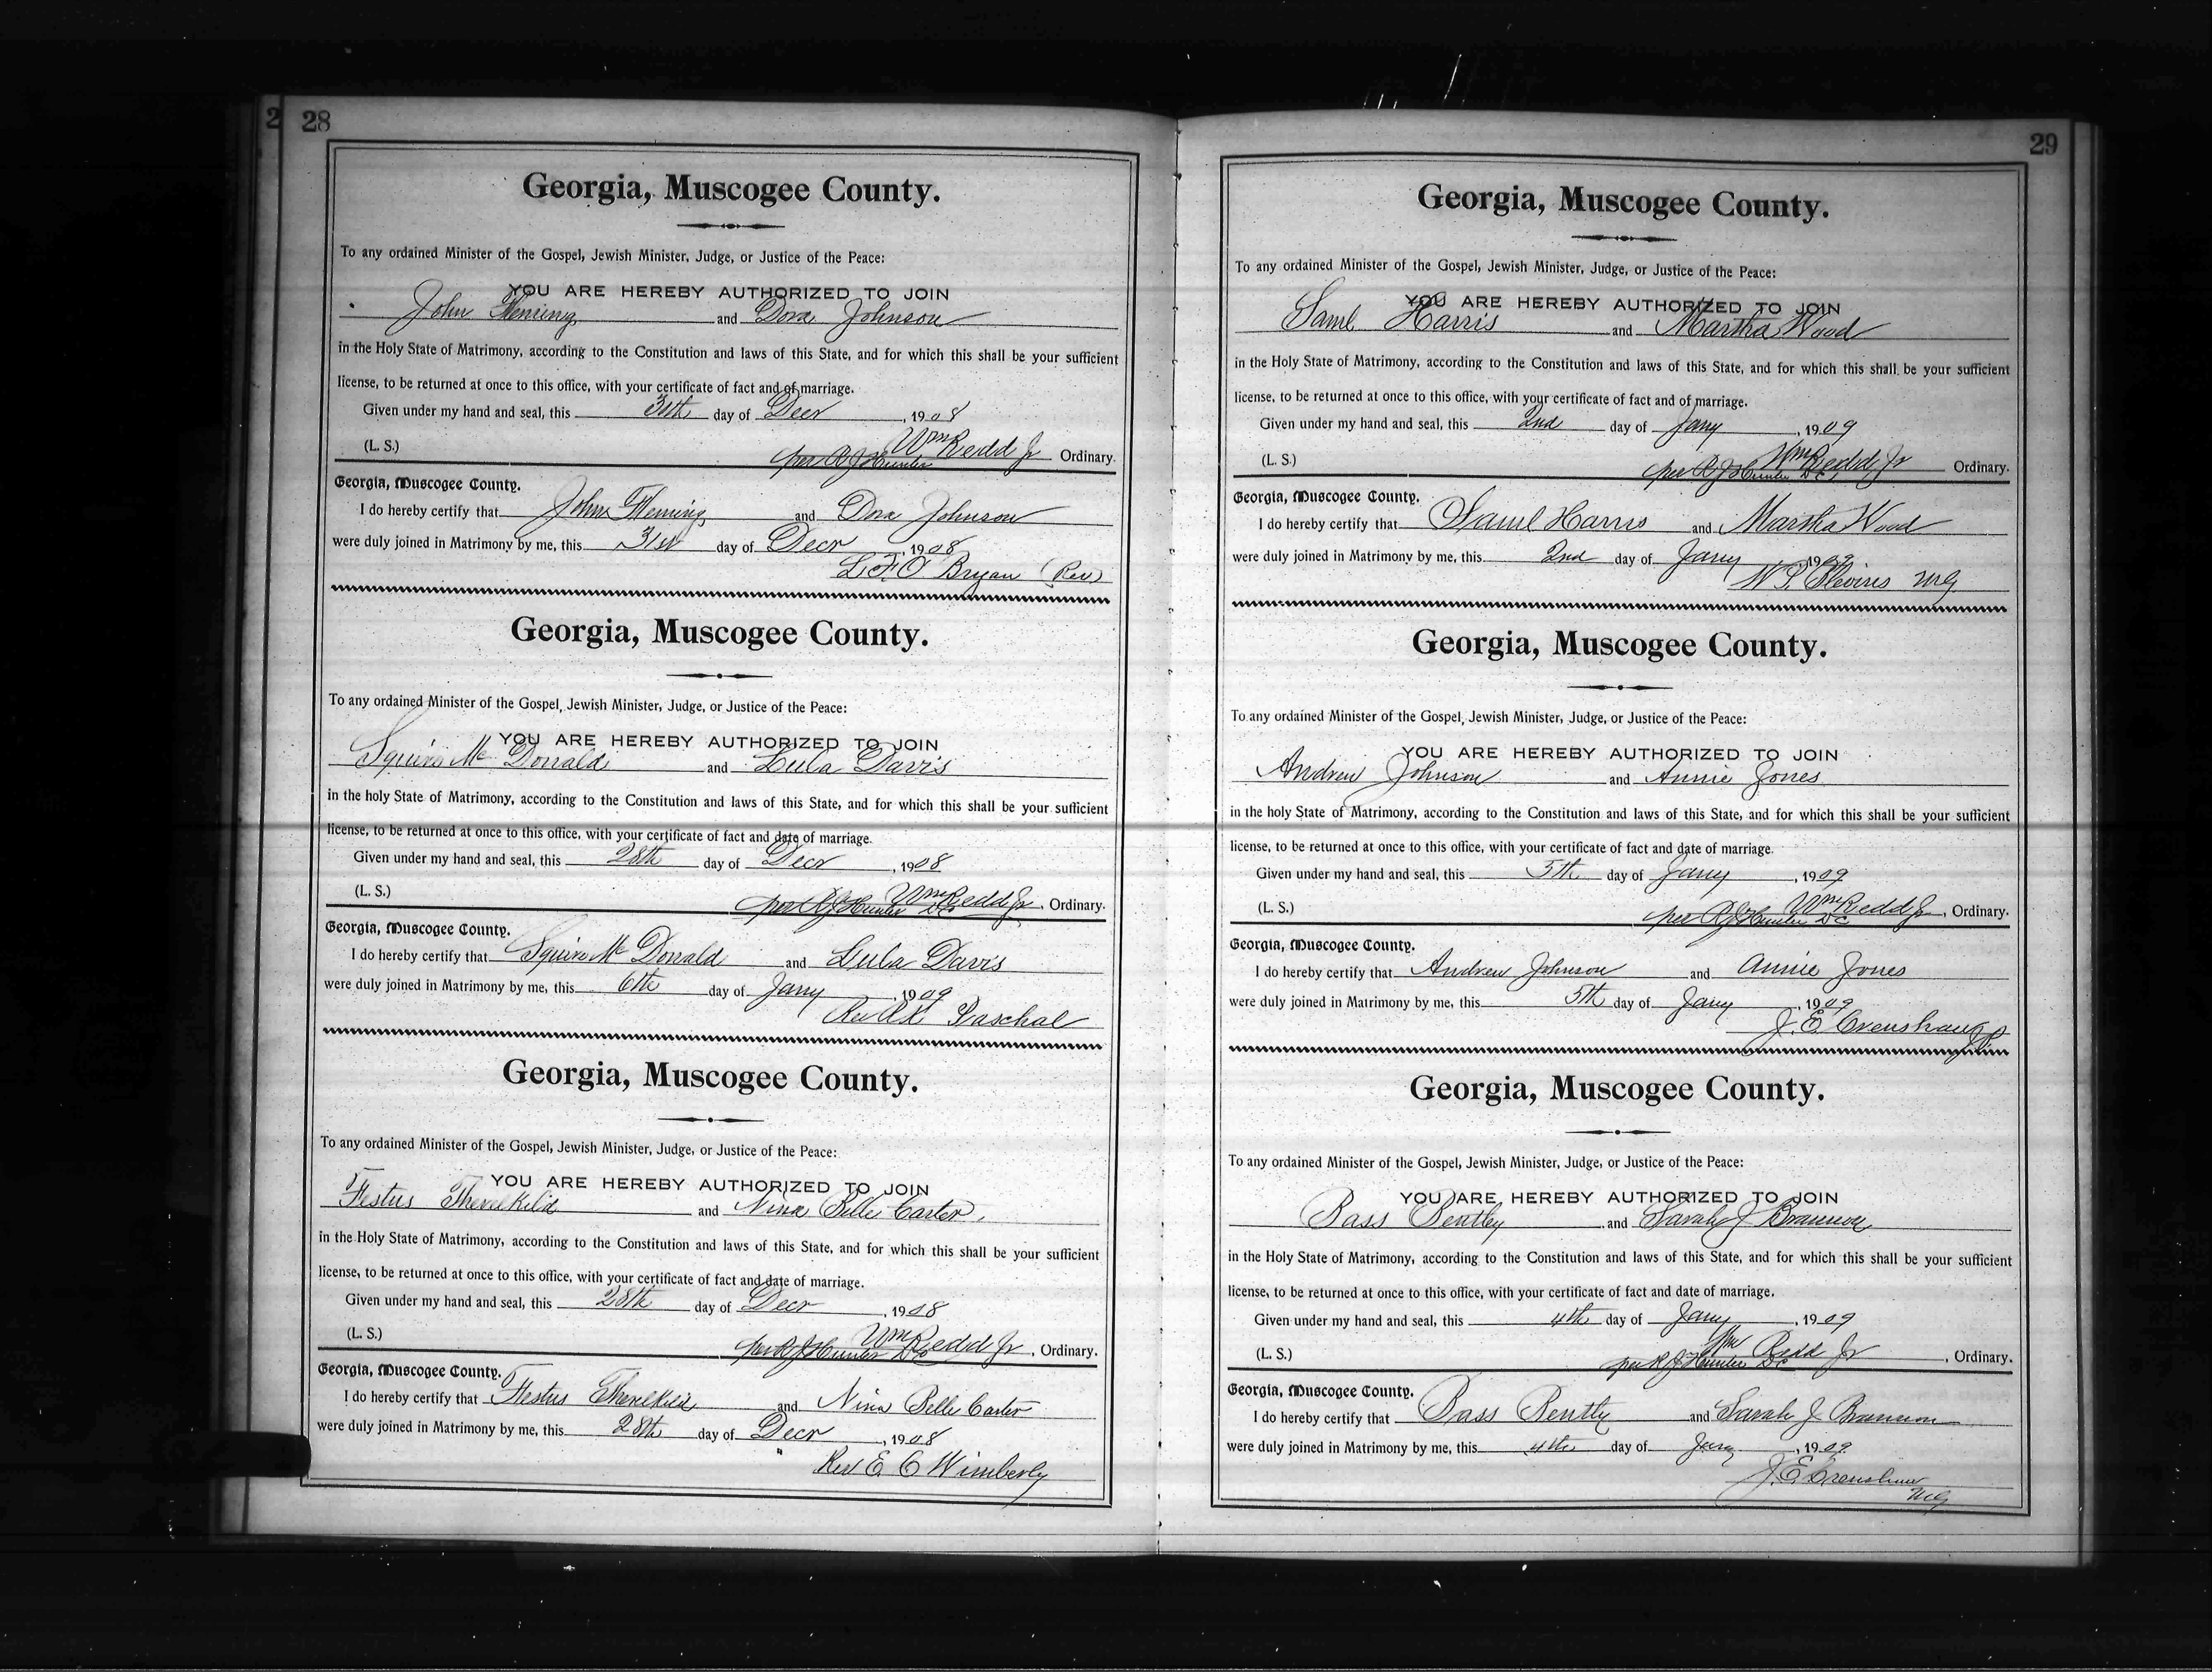 2 28
Georgia, Muscogee County.
To any ordained Minister of the Gospel, Jewish Minister, Judge, or Justice of the Peace:
YOU ARE HEREBY AUTHORIZED TO JOIN
John Fleming and Dora Johnson
in the Holy State of Matrimony, according to the Constitution and laws of this State, and for which this shall be your sufficient
license, to be returned at once to this office, with your certificate of fact and of marriage.
Given under my hand and seal, this day of Decr , 1908
(L. S.) Wm Redd Jr Ordinary.
per R J Hunter
Georgia, Muscogee County.
I do hereby certify that John Fleming and Dora Johnson
were duly joined in Matrimony by me, this 31st day of Decr , 1908
L. F. O Bryan (Rev)
Georgia, Muscogee County.
To any ordained Minister of the Gospel, Jewish Minister, Judge, or Justice of the Peace:
YOU ARE HEREBY AUTHORIZED TO JOIN
Squire McDonald and Lula Davis
in the holy State of Matrimony, according to the Constitution and laws of this State, and for which this shall be your sufficient
license, to be returned at once to this office, with your certificate of fact and date of marriage.
Given under my hand and seal, this 28th day of Decr , 1908
(L. S.) Wm Redd Jr , Ordinary.
per R J Hunter DC
Georgia, Muscogee County.
I do hereby certify that Squire McDonald and Lula Davis
were duly joined in Matrimony by me, this 6th day of Jany , 1909
Rev Paschal
Georgia, Muscogee County.
To any ordained Minister of the Gospel, Jewish Minister, Judge, or Justice of the Peace:
YOU ARE HEREBY AUTHORIZED TO JOIN
Festus Therelkild and Nina Belle Carter
in the Holy State of Matrimony, according to the Constitution and laws of this State, and for which this shall be your sufficient
license, to be returned at once to this office, with your certificate of fact and date of marriage.
Given under my hand and seal, this 28th day of Decr , 1908
(L. S.) Wm Redd Jr , Ordinary.
per R J Hunter DC
Georgia, Muscogee County.
I do hereby certify that Festus Therelkild and Nina Belle Carter
were duly joined in Matrimony by me, this 28th day of Decr , 1908
Rev E. C Wimberly
29
Georgia, Muscogee County.
To any ordained Minister of the Gospel, Jewish Minister, Judge, or Justice of the Peace:
YOU ARE HEREBY AUTHORIZED TO JOIN
Saml Harris and Martha Wood
in the Holy State of Matrimony, according to the Constitution and laws of this State, and for which this shall be your sufficient
license, to be returned at once to this office, with your certificate of fact and of marriage.
Given under my hand and seal, this 2nd day of Jany , 1909
(L. S.) Wm Redd Jr Ordinary.
per R J Hunter DC
Georgia, Muscogee County.
I do hereby certify that Saml Harris and Martha Wood
were duly joined in Matrimony by me, this 2nd day of Jany 1909
MG
Georgia, Muscogee County.
To any ordained Minister of the Gospel, Jewish Minister, Judge, or Justice of the Peace:
YOU ARE HEREBY AUTHORIZED TO JOIN
Andrew Johnson and Annie Jones
in the holy State of Matrimony, according to the Constitution and laws of this State, and for which this shall be your sufficient
license, to be returned at once to this office, with your certificate of fact and date of marriage.
Given under my hand and seal, this 5th day of Jany , 1909
(L. S.) Wm Redd Jr , Ordinary.
per R J Hunter DC
Georgia, Muscogee County.
I do hereby certify that Andrew Johnson and Annie Jones
were duly joined in Matrimony by me, this 5th day of Jany , 1909
J. E. Crenshaw
Georgia, Muscogee County.
To any ordained Minister of the Gospel, Jewish Minister, Judge, or Justice of the Peace:
YOU ARE HEREBY AUTHORIZED TO JOIN
Bass Bentley and Sarah J Brannon
in the Holy State of Matrimony, according to the Constitution and laws of this State, and for which this shall be your sufficient
license, to be returned at once to this office, with your certificate of fact and date of marriage.
Given under my hand and seal, this 4th day of Jany , 1909
(L. S.) Wm Redd Jr , Ordinary.
per R J Hunter DC
Georgia, Muscogee County.
I do hereby certify that Bass Bently and Sarah J Brannon
were duly joined in Matrimony by me, this 4th day of Jany , 1909
J. E. Crenshaw
MG